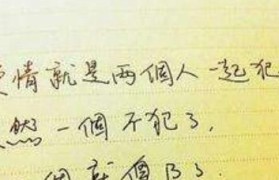 情就是兩個人一起犯
然一個不犯了,
個就個
了.